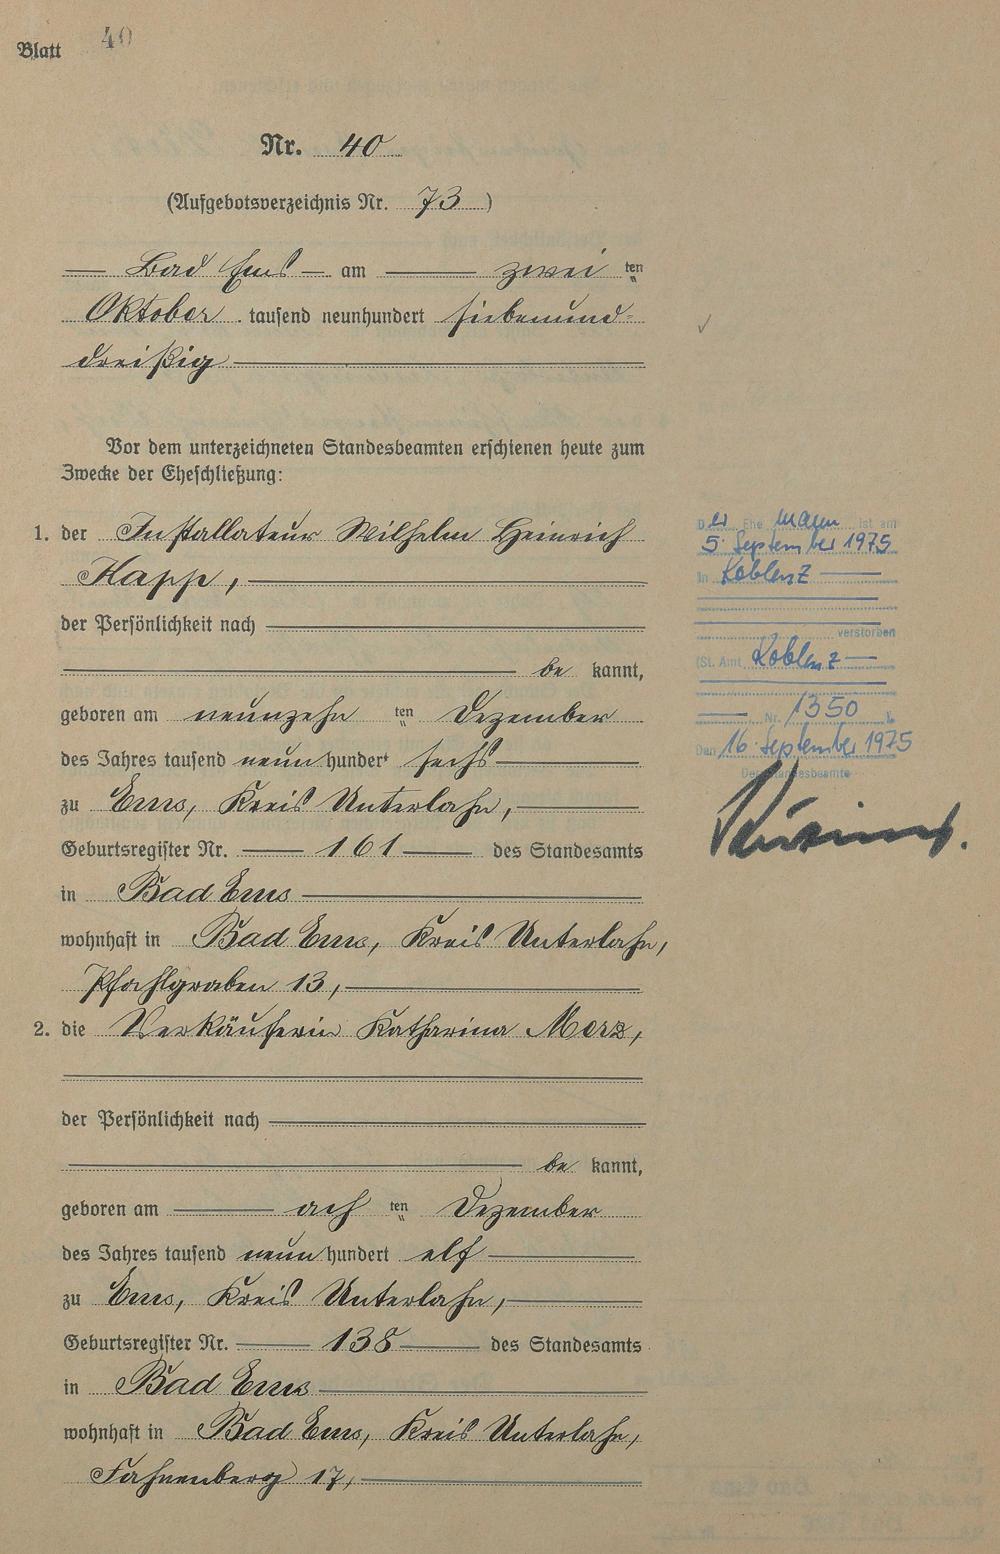 Blatt 40
Nr. 40
(Aufgebotsverzeichnis Nr. 73)
Bad Ems am zwei ten
Oktober tausend neunhundert siebenund-
dreißig
Vor dem unterzeichneten Standesbeamten erschienen heute zum
Zwecke der Eheschließung:
1. der Installateur Wilhelm Heinrich
Kapp,
der Persönlichkeit nach
be kannt,
geboren am neunzehn ten Dezember
des Jahres tausend neun hundert sechs
zu Ems, Kreis Unterlahn,
Geburtsregister Nr. 161 des Standesamts
in Bad Ems
wohnhaft in Bad Ems, Kreis Unterlahn,
Pfahlgraben 13,
2. die Verkäuferin Katharina Merz,
der Persönlichkeit nach
be kannt,
geboren am ach ten Dezember
des Jahres tausend neun hundert elf
zu Ems, Kreis Unterlahn,
Geburtsregister Nr. 138 des Standesamts
in Bad Ems
wohnhaft in Bad Ems, Kreis Unterlahn,
Fahnenberg 17,
Der Ehemann ist am
5. September 1975
in Koblenz
verstorben
(St. Amt Koblenz
Nr. 1350
Den 16. September 1975
Der Standesbeamte